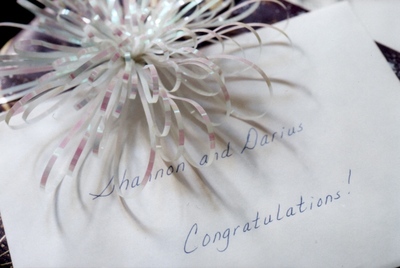 Shannon and Darius
Congratulations!